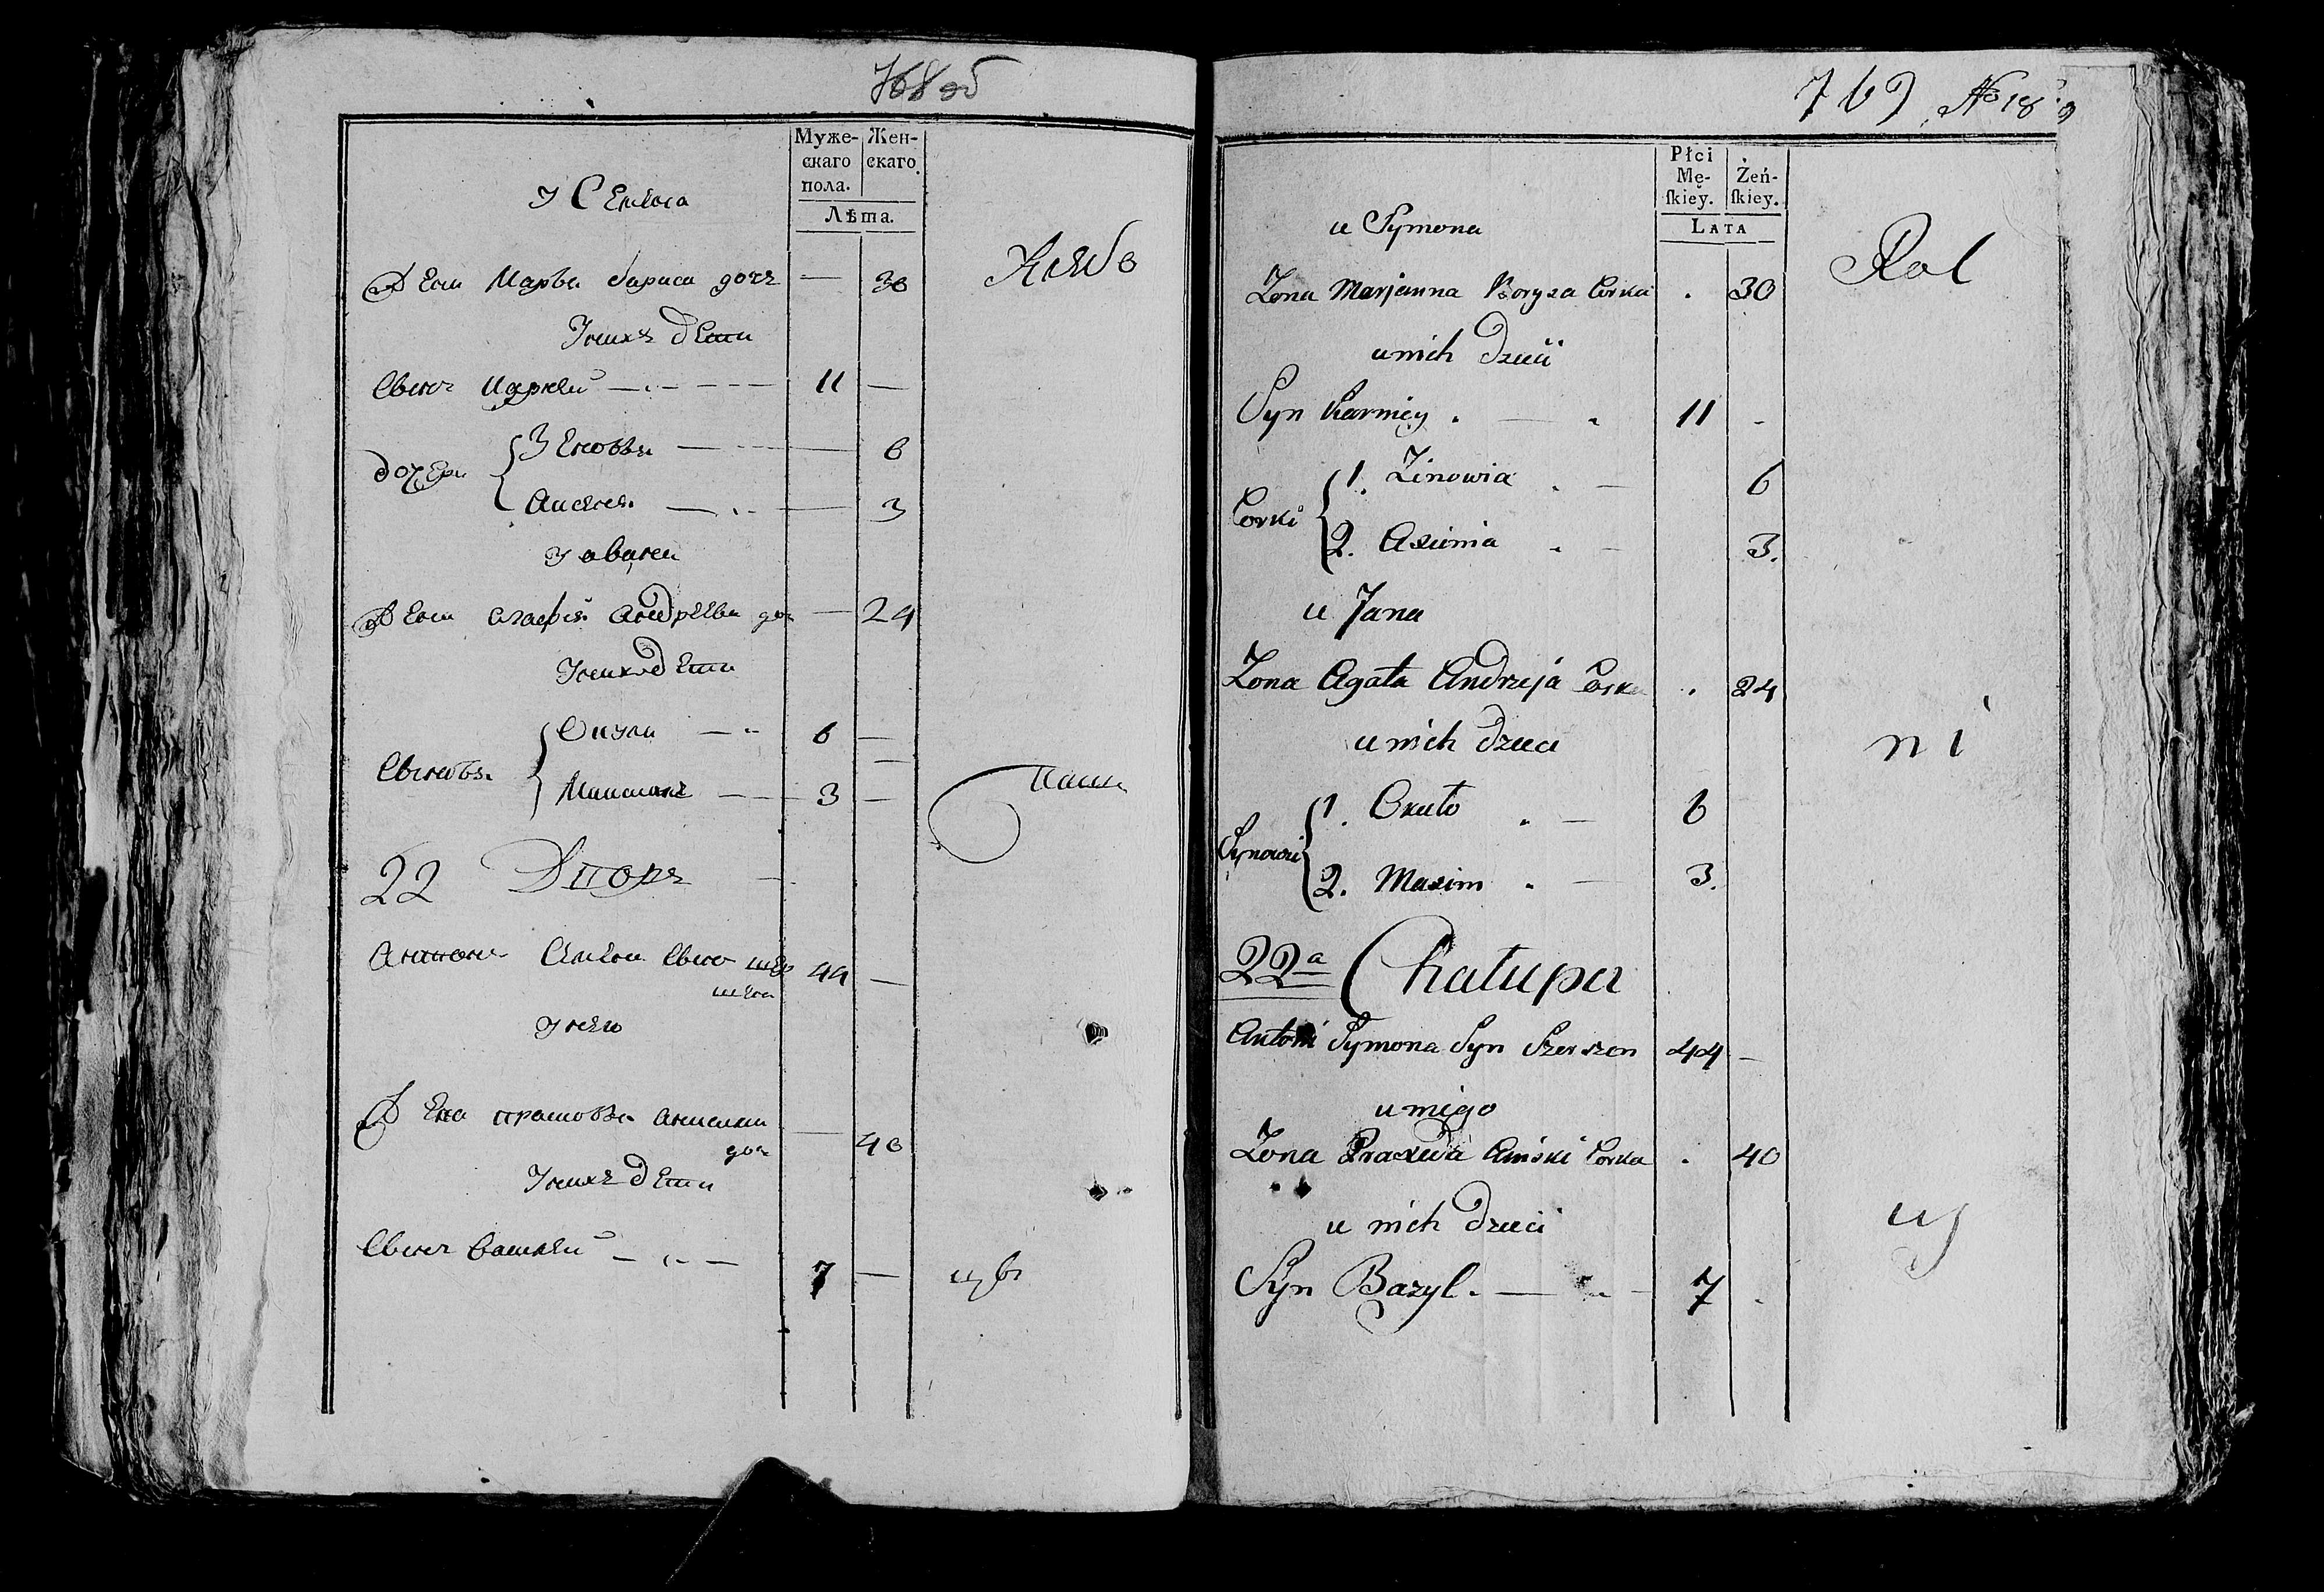 768 об
Муже-
скаго
пола.
Жен-
скаго.
Лѣта.
У Семена
Жена Марья бариса дочь — 30
У них дети
Сынъ Карней 11 —
Дочери
Зеновья — 6
Аксеня — 3
У
Жена агафия андреева доч — 24
У них дети
Сыновья
6 —
Максимъ 3 —
Хлебо
паш
22 Дворъ
Антонъ Семена сынъ шер
шень 44 —
У нево
Жена — 40
доч
У них дети
Сынъ Василей 7 —
цы
769 No 18
Płci
Mę-
skiey.
Żeń-
skiey.
LATA
u Symona
Zona Marjanna Boryza Corka . 30
u nich dzieci
Syn Karniey . — . 11 .
Corki
1. Zinowia . — 6
2. Axinia . — 3.
u Jana
Zona Agata Andrzeja Corka . 24
u nich dzieci
Synowie
1. . — 6
2. Maxim . — 3.
Rol
ni
22a Chałupa
Antoni Symona Syn Szerszen 44 —
u niego
Zona Praxeda Corka . 40
u nich dzieci
Syn Bazyl . — 7 .
cy